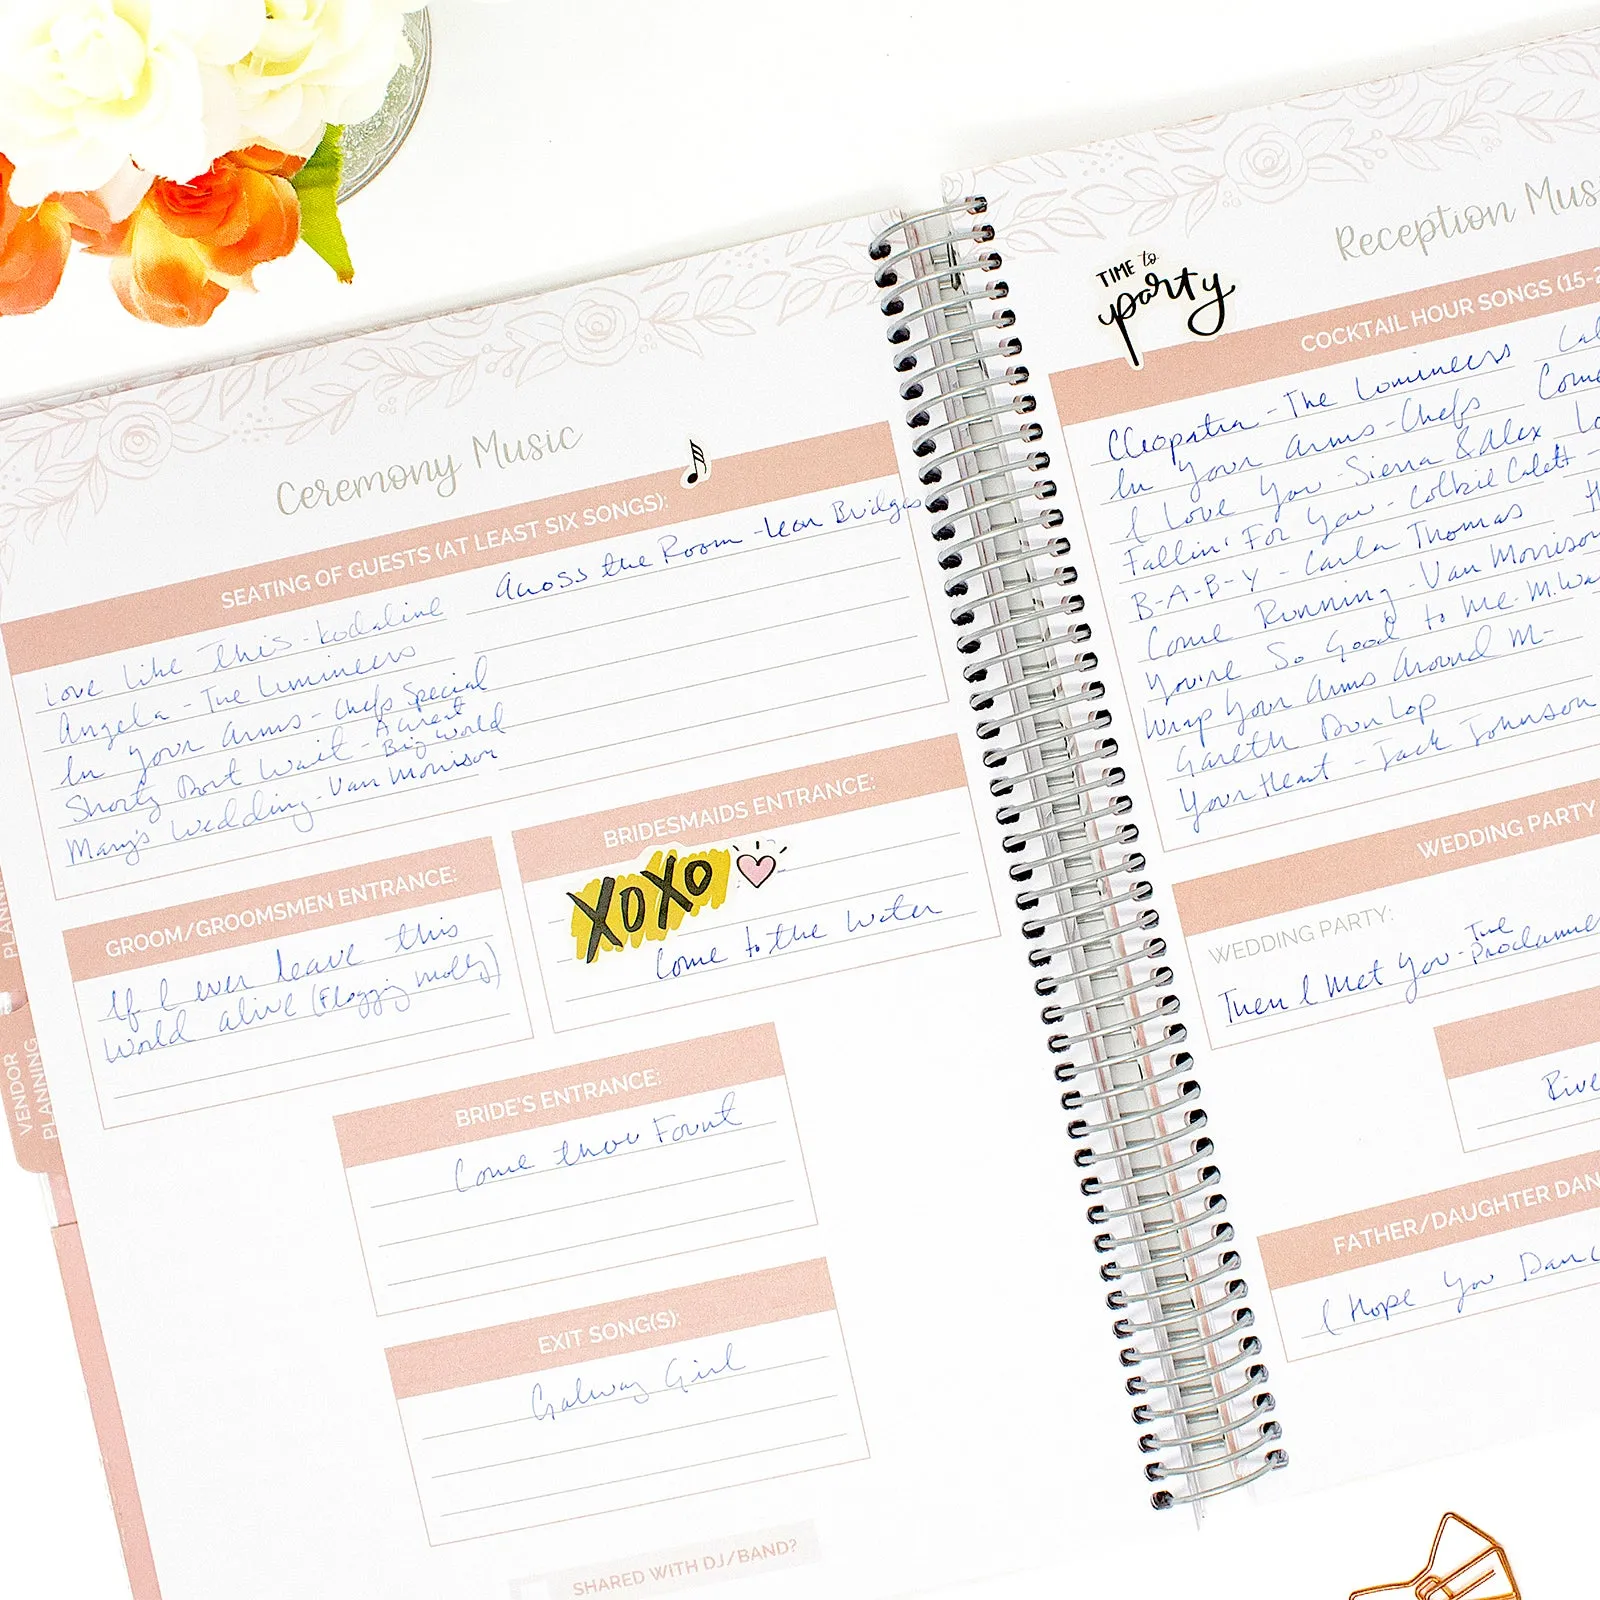 Ceremony Music
SEATING OF GUESTS (AT LEAST SIX SONGS):
Love Like This - Kodaline
Across the Room - Leon Bridges
Angela - The Lumineers
In your arms - Chefs Special
Shorty Don't Wait - A Great Big World
Mary's Wedding - Van Morrison
GROOM/GROOMSMEN ENTRANCE:
If I ever leave this
World alive (Flogging Molly)
BRIDESMAIDS ENTRANCE:
XOXO
Come to the Water
BRIDE'S ENTRANCE:
Come thou Fount
EXIT SONG(S):
Galway Girl
SHARED WITH DJ/BAND?
VENDOR
PLANNING
Reception Mus
TIME to
party
COCKTAIL HOUR SONGS (15-2
Cleopatra - The Lumineers
In your arms - Chefs Come
I Love You - Sienna & Alex
Fallin' For You - Colbie
B-A-B-Y - Carla Thomas
Come Running - Van Morrison
You're So Good to Me - M. Wa
Wrap Your Arms Around M-
Gareth Dunlop
Your Heart - Jack Johnson
WEDDING PARTY
WEDDING PARTY:
Then I Met You - The Proclaime
Rive
FATHER/DAUGHTER DAN
I Hope You Danc